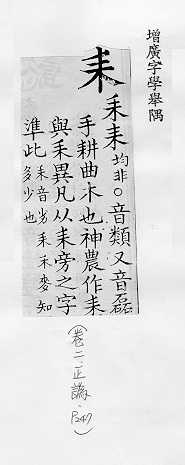 增廣字學舉隅
耒 耒耒均非○音類又音磊
手耕曲木也神農作耒
與耒異凡从耒旁之字
準此耒音岁耒禾麥知多少也
(卷二.正譌.P247)